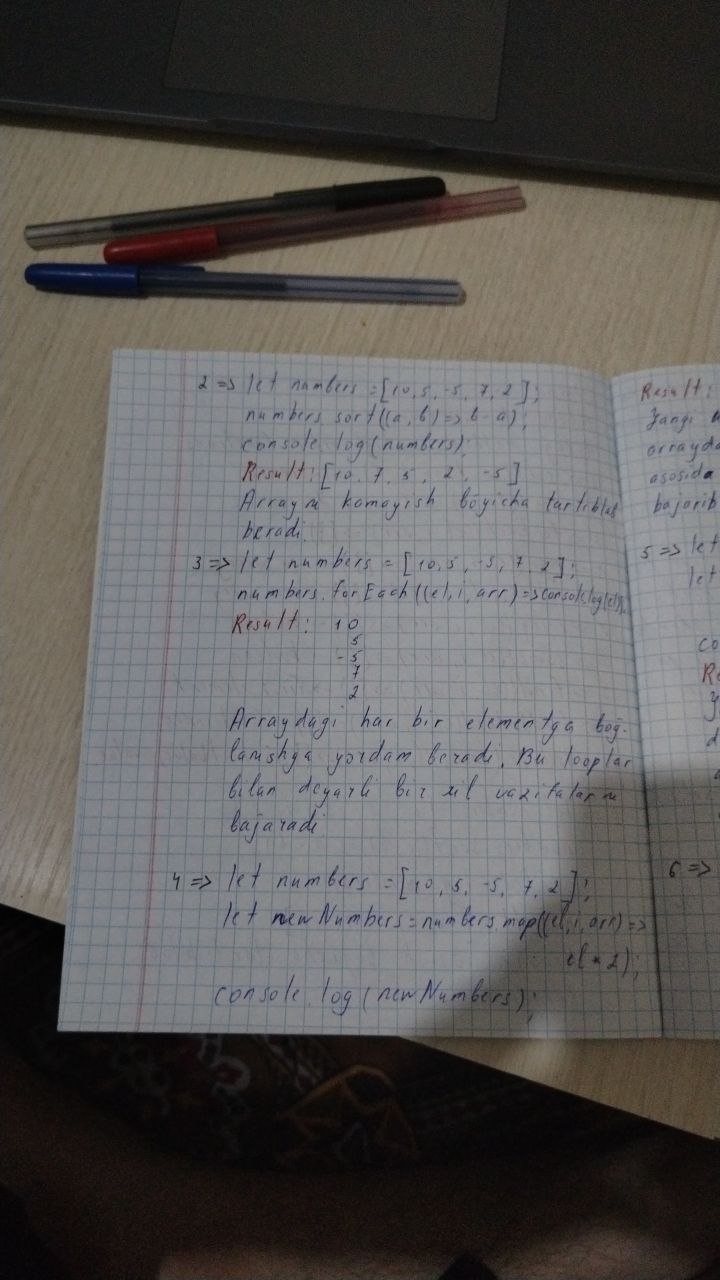 2 => let numbers = [10, 5, -5, 7, 2];
numbers.sort((a, b) => b - a);
console.log(numbers);
Result: [10, 7, 5, 2, -5]
Arrayni kamayish bo'yicha tartiblab
beradi.
3 => let numbers = [10, 5, -5, 7, 2];
numbers.forEach((el, i, arr) => console.log(el));
Result: 10
5
-5
7
2
Arraydagi har bir elementga bog'-
lanishga yordam beradi. Bu looplar
bilan deyarli bir xil vazifalarni
bajaradi
4 => let numbers = [10, 5, -5, 7, 2];
let newNumbers = numbers.map((el, i, arr) =>
el * 2);
console.log(newNumbers);
Result:
Yangi
arrayda
asosida
bajarib
5 => let
let
co
Re
6 =>